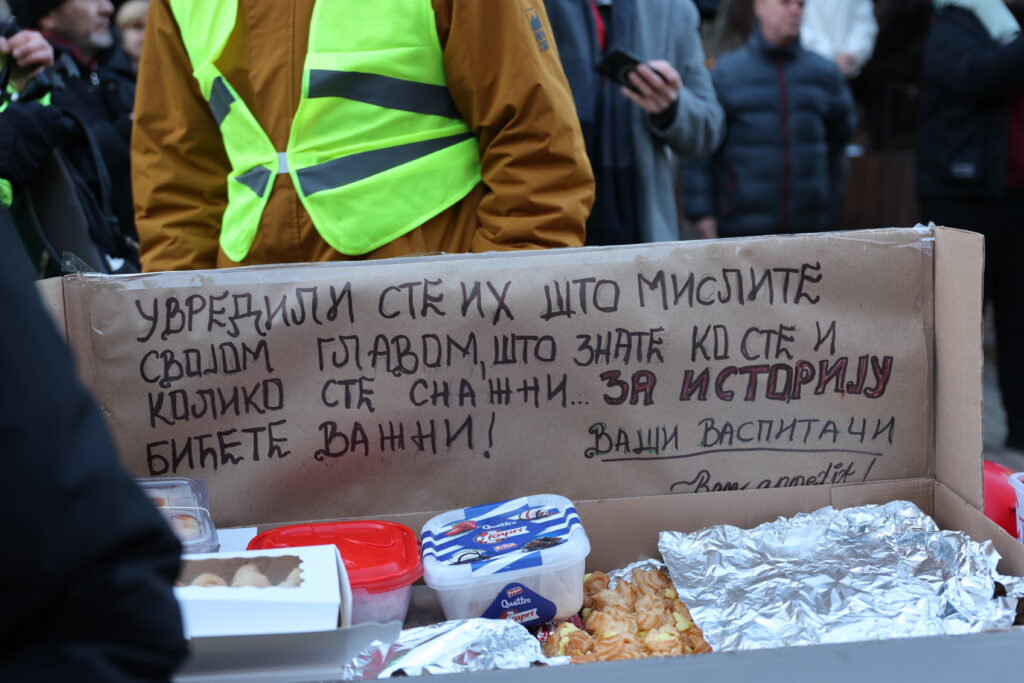 УВРЕДИЛИ СТЕ ИХ ШТО МИСЛИТЕ
СВОЈОМ ГЛАВОМ, ШТО ЗНАТЕ КО СТЕ И
КОЛИКО СТЕ СНАЖНИ... ЗА ИСТОРИЈУ
БИЋЕТЕ ВАЖНИ!
ВАШИ ВАСПИТАЧИ
~Bon appetit!
Quattro
Kapri
Quattro
Kapri